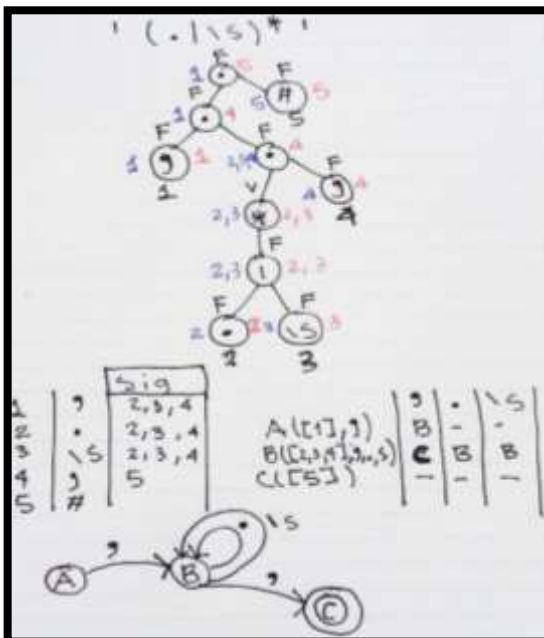 ' ( . | \s ) * '
F
F
1 • 5
F
# 5
5
F
1 • 4
F
1 9 1
1
F
• 4
F
4 9 4
4
V
2,3 * 2,3
F
2,3 | 2,3
F
2 •
2
F
\S 3
3
sig
1 | ' | 2,3,4
2 | • | 2,3,4
3 | \S | 2,3,4
4 | ' | 5
5 | #
' | . | \S
A([1],') | B | - | -
B([2,3,4],',.,s) | C | B | B
C([5]) | - | - | -
• \S
' '
A B C